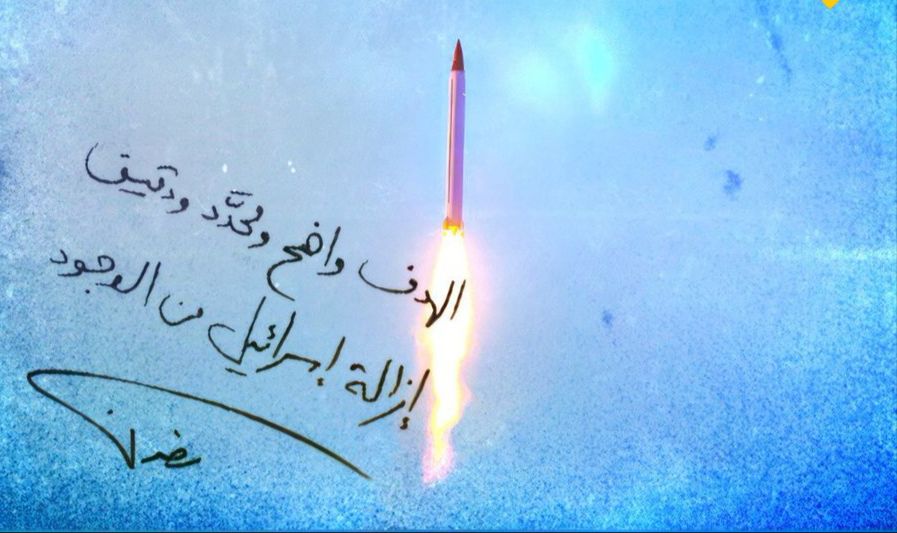 الهدف واضح ومحدّد ودقيق
إزالة إسرائيل من الوجود